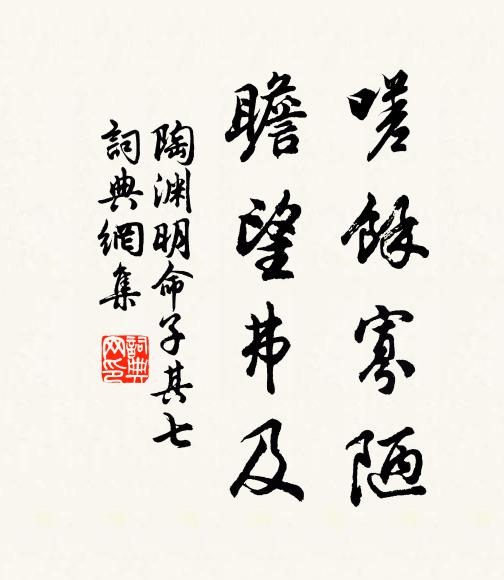 嗟餘寡陋
瞻望弗及
陶渊明命子其七
詞典網集
詞典
网印